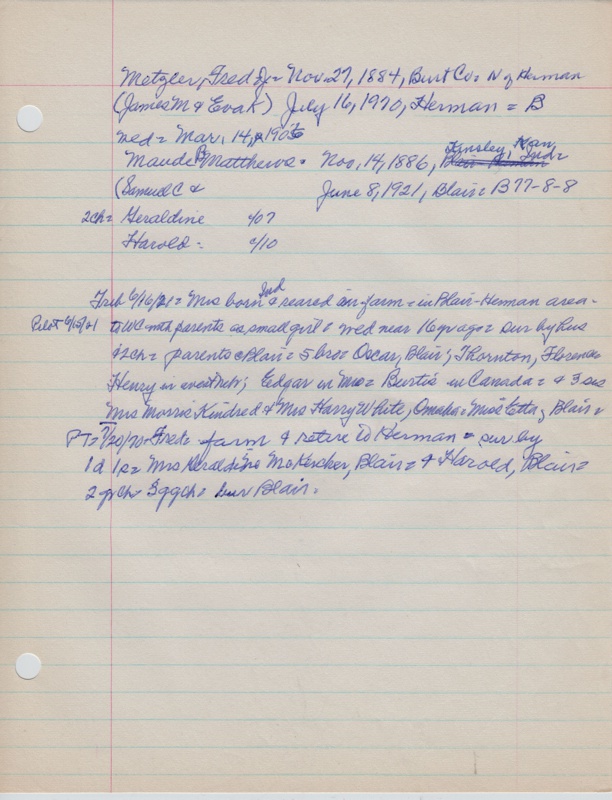 Metzler, Fred J = Nov. 27, 1884, Burt Co = N of Herman
(James M & Eva K) July 16, 1970, Herman = B
Wed = Mar. 14, 1905
Tinsley, Kan, Ind =
Maude B Matthews = Nov. 14, 1886,
(Samuel C & June 8, 1921, Blair = B 77-8-8
2ch = Geraldine 4/07
Harold = c/10
Trib 6/16/21 = Mrs born Ind & reared on farm = in Blair-Herman area =
Pilot 6/15/21 to WC with parents as small girl = wed near 16 yr ago = sur by hus
& 2ch = parents @ Blair = 5 bro = Oscar, Blair; Thornton, Florence
Henry in west Neb; Edgar in Mo = Burtis in Canada = & 3 sis
Mrs Morris Kindred & Mrs Harry White, Omaha = Miss Etta, Blair =
PT = 7/20/70 = Fred = farm & retire to Herman = sur by
1d 1s = Mrs Geraldine McKercher, Blair = & Harold, Blair =
2 gr ch = 3 ggch = bur Blair =